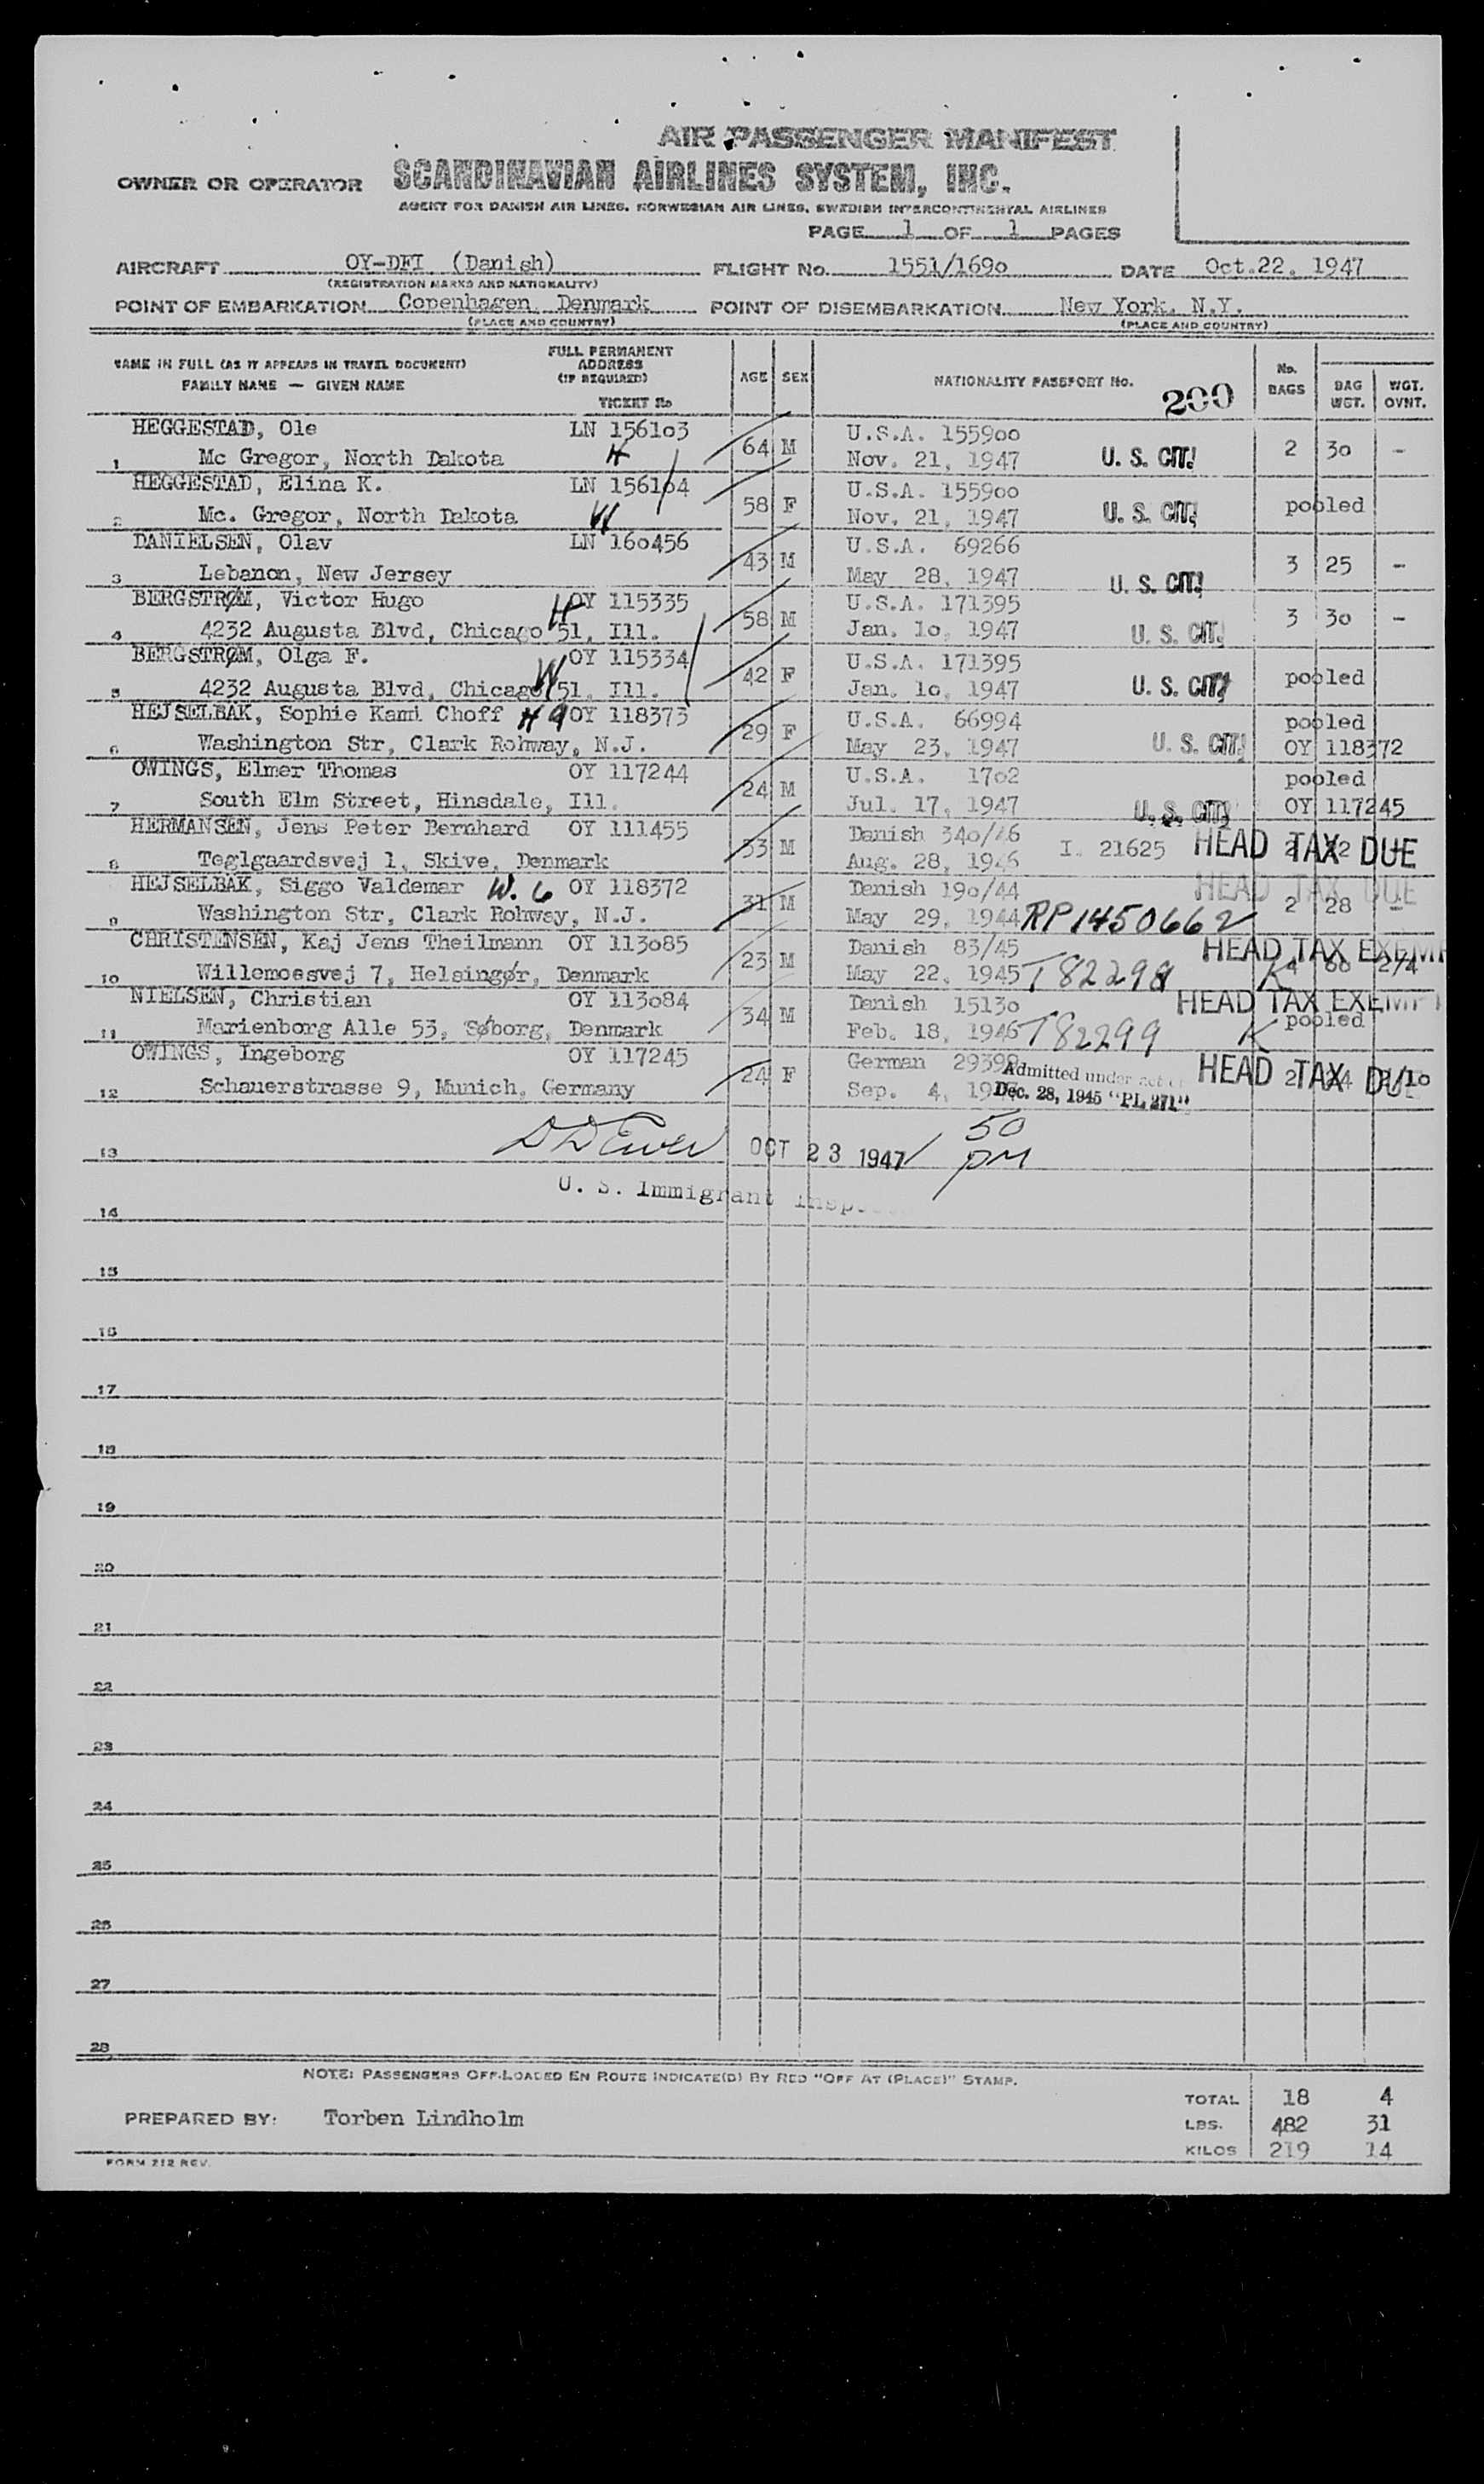 AIR PASSENGER MANIFEST
OWNER OR OPERATOR SCANDINAVIAN AIRLINES SYSTEM, INC.
AGENT FOR DANISH AIR LINES, NORWEGIAN AIR LINES, SWEDISH INTERCONTINENTAL AIRLINES
PAGE 1 OF 1 PAGES
AIRCRAFT OY-DFI (Danish) FLIGHT No. 1551/169o DATE Oct.22, 1947
(REGISTRATION MARKS AND NATIONALITY)
POINT OF EMBARKATION Copenhagen, Denmark POINT OF DISEMBARKATION New York, N.Y.
(PLACE AND COUNTRY) (PLACE AND COUNTRY)
NAME IN FULL (AS IT APPEARS IN TRAVEL DOCUMENT) FULL PERMANENT ADDRESS (IF REQUIRED) AGE SEX NATIONALITY PASSPORT No. No. BAGS BAG WGT. WGT. OVNT.
FAMILY NAME — GIVEN NAME TICKET No 200
HEGGESTAD, Ole LN 1561o3 U.S.A. 1559oo
1 Mc Gregor, North Dakota H 64 M Nov. 21, 1947 U. S. CIT. 2 3o -
HEGGESTAD, Elina K. LN 1561o4 U.S.A. 1559oo
2 Mc. Gregor, North Dakota W 58 F Nov. 21, 1947 U. S. CIT. pooled
DANIELSEN, Olav LN 16o456 U.S.A. 69266
3 Lebanon, New Jersey 43 M May 28, 1947 U. S. CIT. 3 25 -
BERGSTRØM, Victor Hugo H OY 115335 U.S.A. 171395
4 4232 Augusta Blvd, Chicago 51, Ill. 58 M Jan. 1o, 1947 U. S. CIT. 3 3o -
BERGSTRØM, Olga F. W OY 115334 U.S.A. 171395
5 4232 Augusta Blvd, Chicago 51, Ill. 42 F Jan. 1o, 1947 U. S. CIT. pooled
HEJSELBAK, Sophie Kami Choff H 9 OY 118373 U.S.A. 66994 pooled
6 Washington Str, Clark Rohway, N.J. 29 F May 23, 1947 U. S. CIT. OY 118372
OWINGS, Elmer Thomas OY 117244 U.S.A. 17o2 pooled
7 South Elm Street, Hinsdale, Ill. 24 M Jul. 17, 1947 U. S. CIT. OY 117245
HERMANSEN, Jens Peter Bernhard OY 111455 Danish 34o/46
8 Teglgaardsvej 1, Skive, Denmark 33 M Aug. 28, 1946 I. 21625 HEAD TAX DUE
HEJSELBAK, Siggo Valdemar W. 6 OY 118372 Danish 19o/44 HEAD TAX DUE
9 Washington Str, Clark Rohway, N.J. 31 M May 29, 1944 RP1450662 2 28 -
CHRISTENSEN, Kaj Jens Theilmann OY 113o85 Danish 83/45 HEAD TAX EXEMP
10 Willemoesvej 7, Helsingør, Denmark 23 M May 22, 1945 T82298 K 4 6o 2/4
NIELSEN, Christian OY 113o84 Danish 1513o HEAD TAX EXEMPT
11 Marienborg Alle 53, Søborg, Denmark 34 M Feb. 18, 1946 T82299 K pooled
OWINGS, Ingeborg OY 117245 German Admitted under act
12 Schauerstrasse 9, Munich, Germany 24 F Sep. 4, Dec. 28, 1945 "PL 271" HEAD TAX DUE
13 OCT 23 1947 50 PM
U. S. Immigrant
14
15
16
17
18
19
20
21
22
23
24
25
26
27
28
NOTE: PASSENGERS OFF-LOADED EN ROUTE INDICATE(D) BY RED "OFF AT (PLACE)" STAMP.
TOTAL 18 4
PREPARED BY: Torben Lindholm LBS. 482 31
KILOS 219 14
FORM 212 REV.